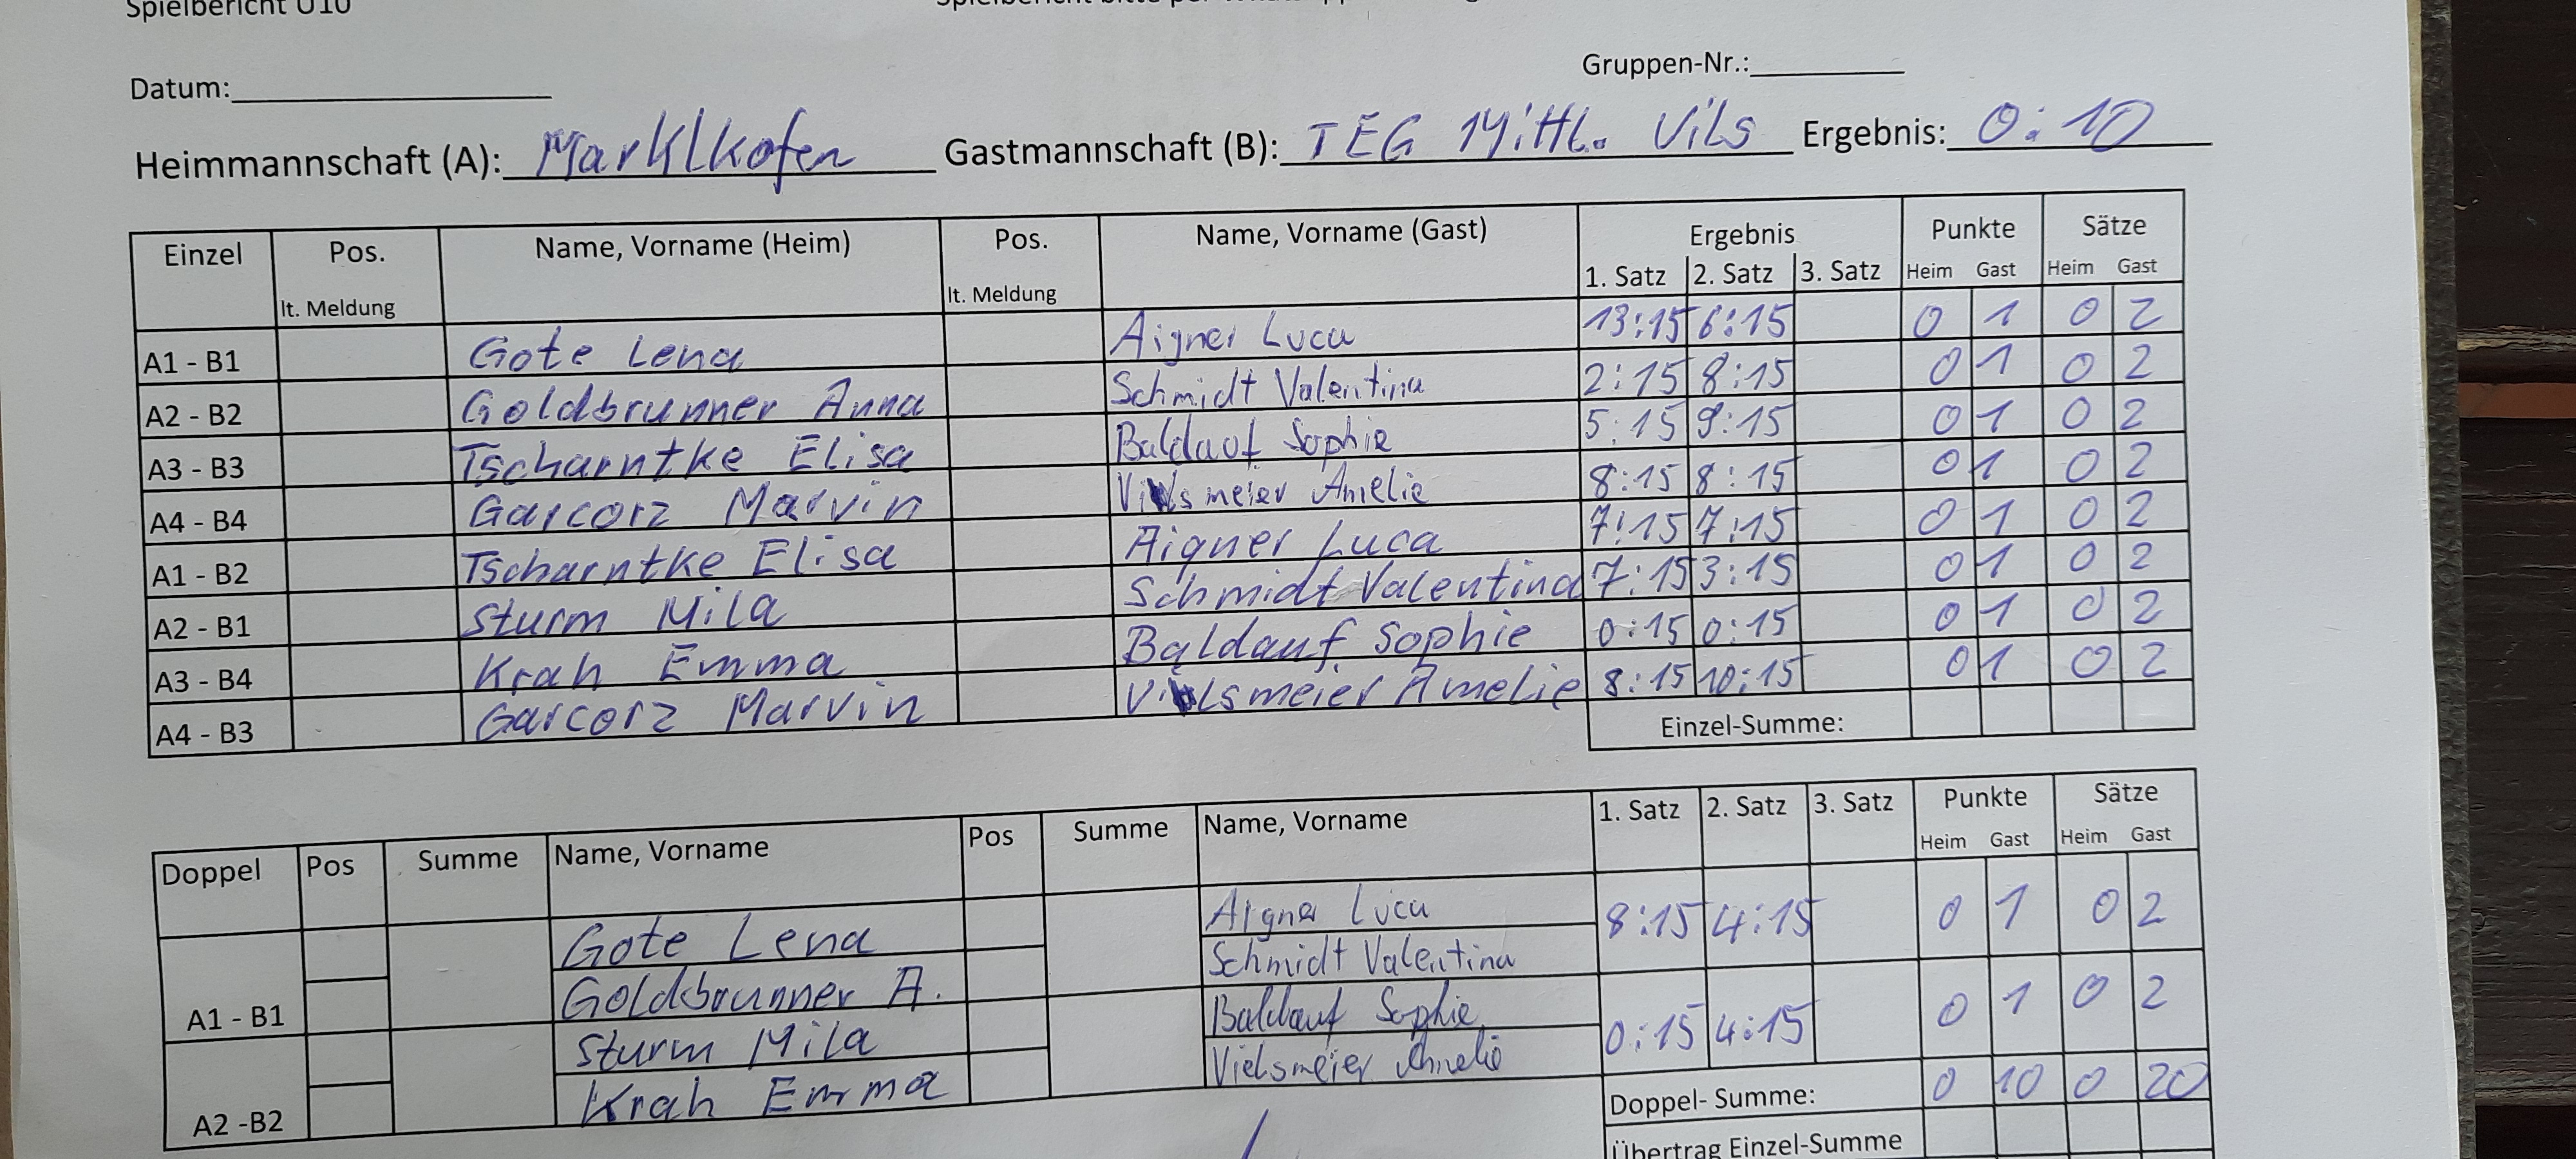 Spielbericht U10
Datum:
Gruppen-Nr.:
Heimmannschaft (A): Marklkofen Gastmannschaft (B): TEG Mittl. Vils Ergebnis: 0:10
Einzel Pos. Name, Vorname (Heim) Pos. Name, Vorname (Gast) Ergebnis Punkte Sätze
lt. Meldung lt. Meldung 1. Satz 2. Satz 3. Satz Heim Gast Heim Gast
A1 - B1 Gote Lena Aigner Luca 13:15 6:15 0 1 0 2
A2 - B2 Goldbrunner Anna Schmidt Valentina 2:15 8:15 0 1 0 2
A3 - B3 Tscharntke Elisa Baldauf Sophie 5:15 9:15 0 1 0 2
A4 - B4 Garcorz Marvin Vielsmeier Amelie 8:15 8:15 0 1 0 2
A1 - B2 Tscharntke Elisa Aigner Luca 7:15 7:15 0 1 0 2
A2 - B1 Sturm Mila Schmidt Valentina 7:15 3:15 0 1 0 2
A3 - B4 Krah Emma Baldauf Sophie 0:15 0:15 0 1 0 2
A4 - B3 Garcorz Marvin Vielsmeier Amelie 8:15 10:15 0 1 0 2
Einzel-Summe:
Doppel Pos Summe Name, Vorname Pos Summe Name, Vorname 1. Satz 2. Satz 3. Satz Punkte Sätze
Heim Gast Heim Gast
A1 - B1 Gote Lena Aigner Luca 8:15 4:15 0 1 0 2
Goldbrunner A. Schmidt Valentina
A2 -B2 Sturm Mila Baldauf Sophie 0:15 4:15 0 1 0 2
Krah Emma Vielsmeier Amelie
Doppel- Summe: 0 10 0 20
Übertrag Einzel-Summe